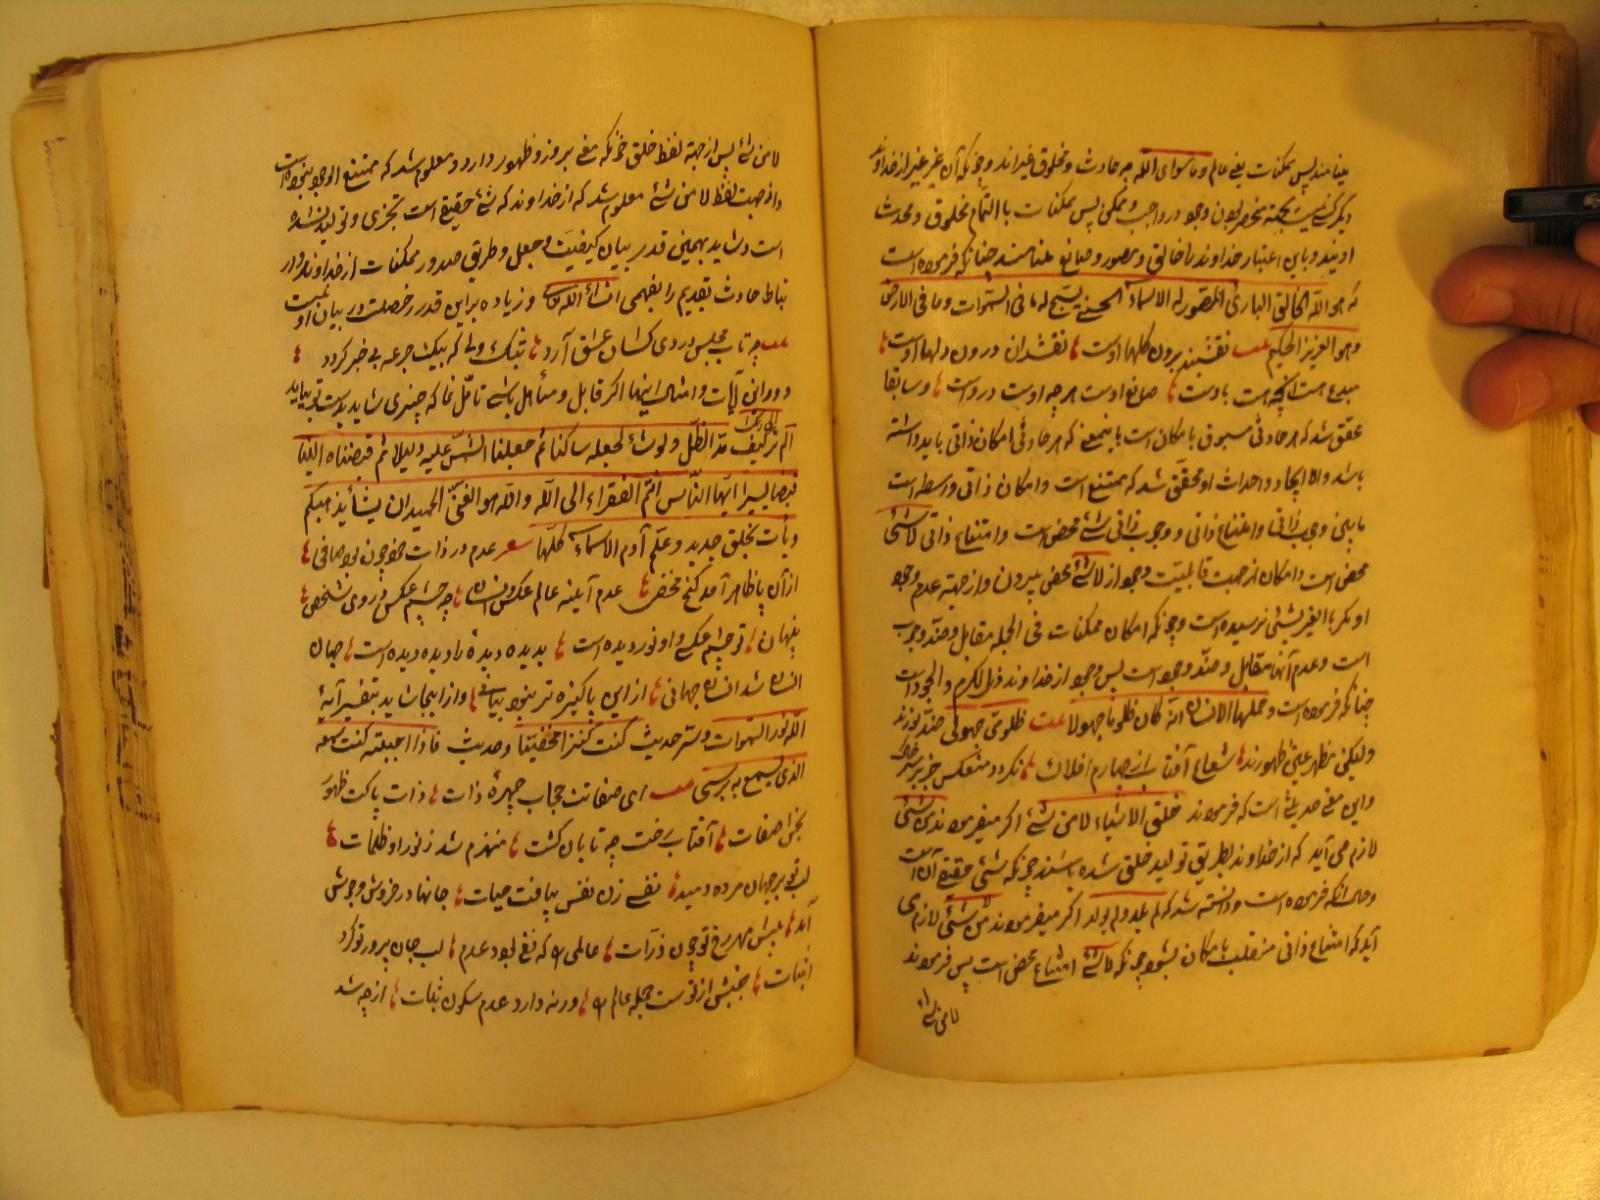 مینامند پس ممکنات یعنی عالم و ماسوای الله چه حادث و مخلوق غیراند و چونکه آن غیر غیر از خداوند
دیگر کسی نیست بجهة منحصر بودن وجود در واجب و ممکن پس ممکنات باالتمام مخلوق و محدث
اویند و باین اعتبار خداوند را خالق و مصور و صانع مینامند چنانکه فرموده است
که هو الله الخالق البارئ المصور له الاسماء الحسنی یسبح له ما فی السموات و ما فی الارض
وهو العزیز الحکیم بیت نقشبند برون گلها اوست نقشدان درون دلها اوست
مبدع هست آنچه هست باوست صانع اوست هرچه اوست دروست و سابقا
محقق شد که هر حادثی مسبوق بامکان است باینمعنی که هر حادثی امکان ذاتی باید داشته
باشد والا ایجاد و احداث او محقق شد که ممتنع است و امکان ذاتی واسطه است
مابین وجوب ذاتی و امتناع ذاتی و وجوب ذاتی شیئ محض است و امتناع ذاتی لاشیئ
محض است و امکان از جهت قابلیت وجود از لاشیئ محض بیرون و از جهة عدم وجود
او مگر باالغیر بشیئ نرسیده است و چونکه امکان ممکنات فی الجمله مقابل و ضد وجوب
است و عدم آنها مقابل و ضد وجود است پس وجود از خداوند ذی الکرم و الجود است
چنانکه فرموده است و حملها الانسان انه کان ظلوما جهولا بیت ظلومی جهولی ضد نورند
ولیکن مظهر عین ظهورند شعاع آفتاب از چهارم افلاک نگردد منعکس جز بر سر خاک
و این معنی حدیثی است که فرمودند خلق الاشیاء لا من شیئ اگر میفرمودند من شیئ
لازم می آید که از خداوند بطریق تولید خلق شده باشند چونکه شیئ حقیقة آن است
و حال آنکه فرموده است و دانسته شد که لم یلد ولم یولد اگر میفرمودند من لاشیئ لازم می
آید که امتناع ذاتی منقلب بامکان بشود چونکه لاشیئ امتناع محض است پس فرمودند
لا من شیئ
لا من شیئ پس از جهة لفظ خلق چونکه معنی بروز و ظهور دارد و معلوم شد که ممتنع الوجود نبوده است
و از جهت لفظ لا من شیئ معلوم شد که از خداوند که شیئ حقیقی است تجزی و تولید نشده
است و شاید بهمین قدر بیان کیفیت وجعل و طریق صدور ممکنات از خداوند و ارتباط
حادث بقدیم را بفهمی انشاء الله و زیاده بر این قدر رخصت در بیان او نیست
بیت چه تاب مجلس دردی کشان عشق آرد تنک دلی که بیک جرعه بی خبر گردد
و در این آیات و امثال اینها اگر قابل و متأمل باشی تأمل نما که چیزی شاید بدست تو بیاید
الم تر الی ربک کیف مد الظل ولو شاء لجعله ساکنا ثم جعلنا الشمس علیه دلیلا ثم قبضناه الینا
قبضا یسیرا ایها الناس انتم الفقراء الی الله والله هو الغنی الحمید ان یشأ یذهبکم
ویأت بخلق جدید و علم آدم الاسماء کلها شعر عدم در ذات خود چون بود صافی
از آن پا ظاهر آمد گنج مخفی عدم آیینه عالم عکس و انسان چو چشم عکس در وی شخص
پنهان تو چشم عکسی و او نور دیده است بدیده دیدهٔ را دیده دیده است جهان
انسان شد انسان جهانی از این پاکیزه تر نبود بیانی و از اینجا شاید تفسیر آیهٔ
الله نور السموات و سر حدیث کنت کنزا مخفیا و حدیث فاذا احببته کنت سمعه
الذی یسمع به برسی بیت ای صفاتت حجاب چهرهٔ ذات ذات پاکت ظهور
بخش صفات آفتاب رخت چه تابان گشت منهزم شد ز نور او ظلمات
لب تو بر جهان مرده دمید نفسی زن نفس بیافت حیات جانها در خروش و جوش
آمد پیش مهر رخ تو چون ذرات عالمی را که نفی بود عدم لب جان پرور تو کرد
اثبات جنبش از تو است جمله عالم را ورنه دارد عدم سکون ثبات از چه شد